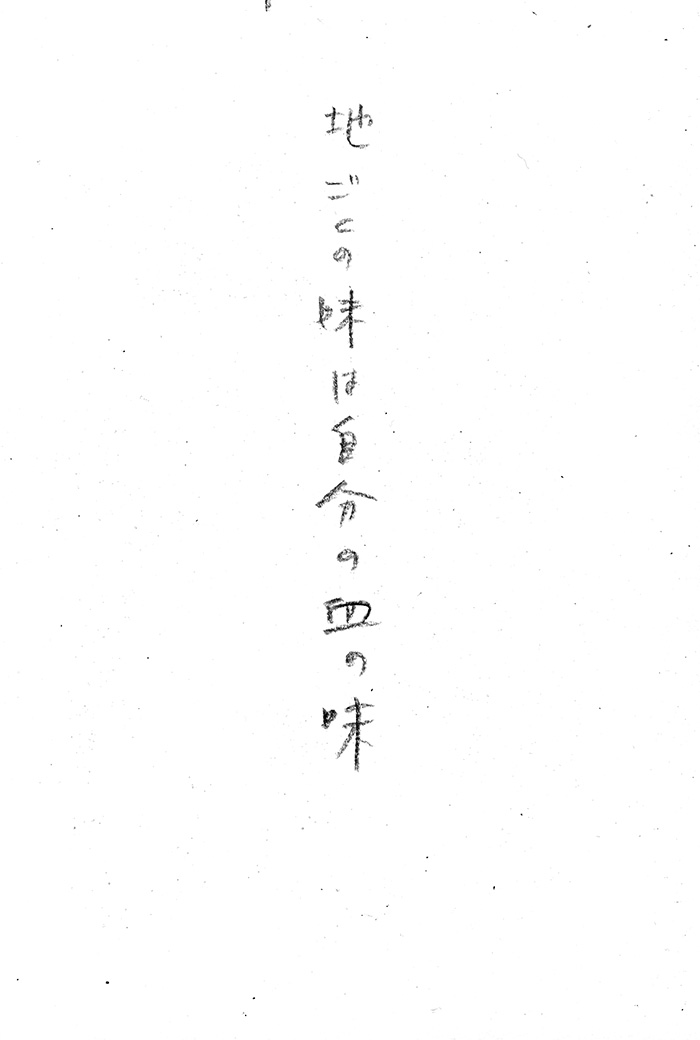 地ごとの味は自分の血の味